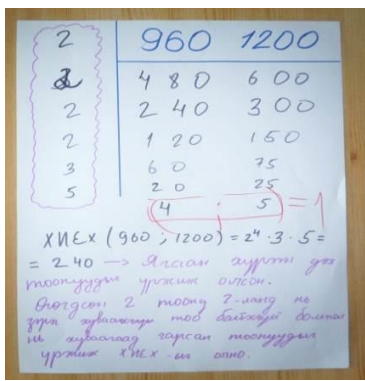 2 960 1200
2 480 600
2 240 300
2 120 150
3 60 75
5 20 25
(4 ; 5) = 1
ХИЕХ (960 ; 1200) = 2⁴ · 3 · 5 =
= 240 → Ягаан хүрээн дэх
тоонуудын үржих олсон.
Өгөгдсөн 2 тоонд 2-ланд нь
зэрэг хуваагдах тоо байхгүй болтол
нь хуваагаад гарсан тоонуудын
үржих ХИЕХ-ийг олно.